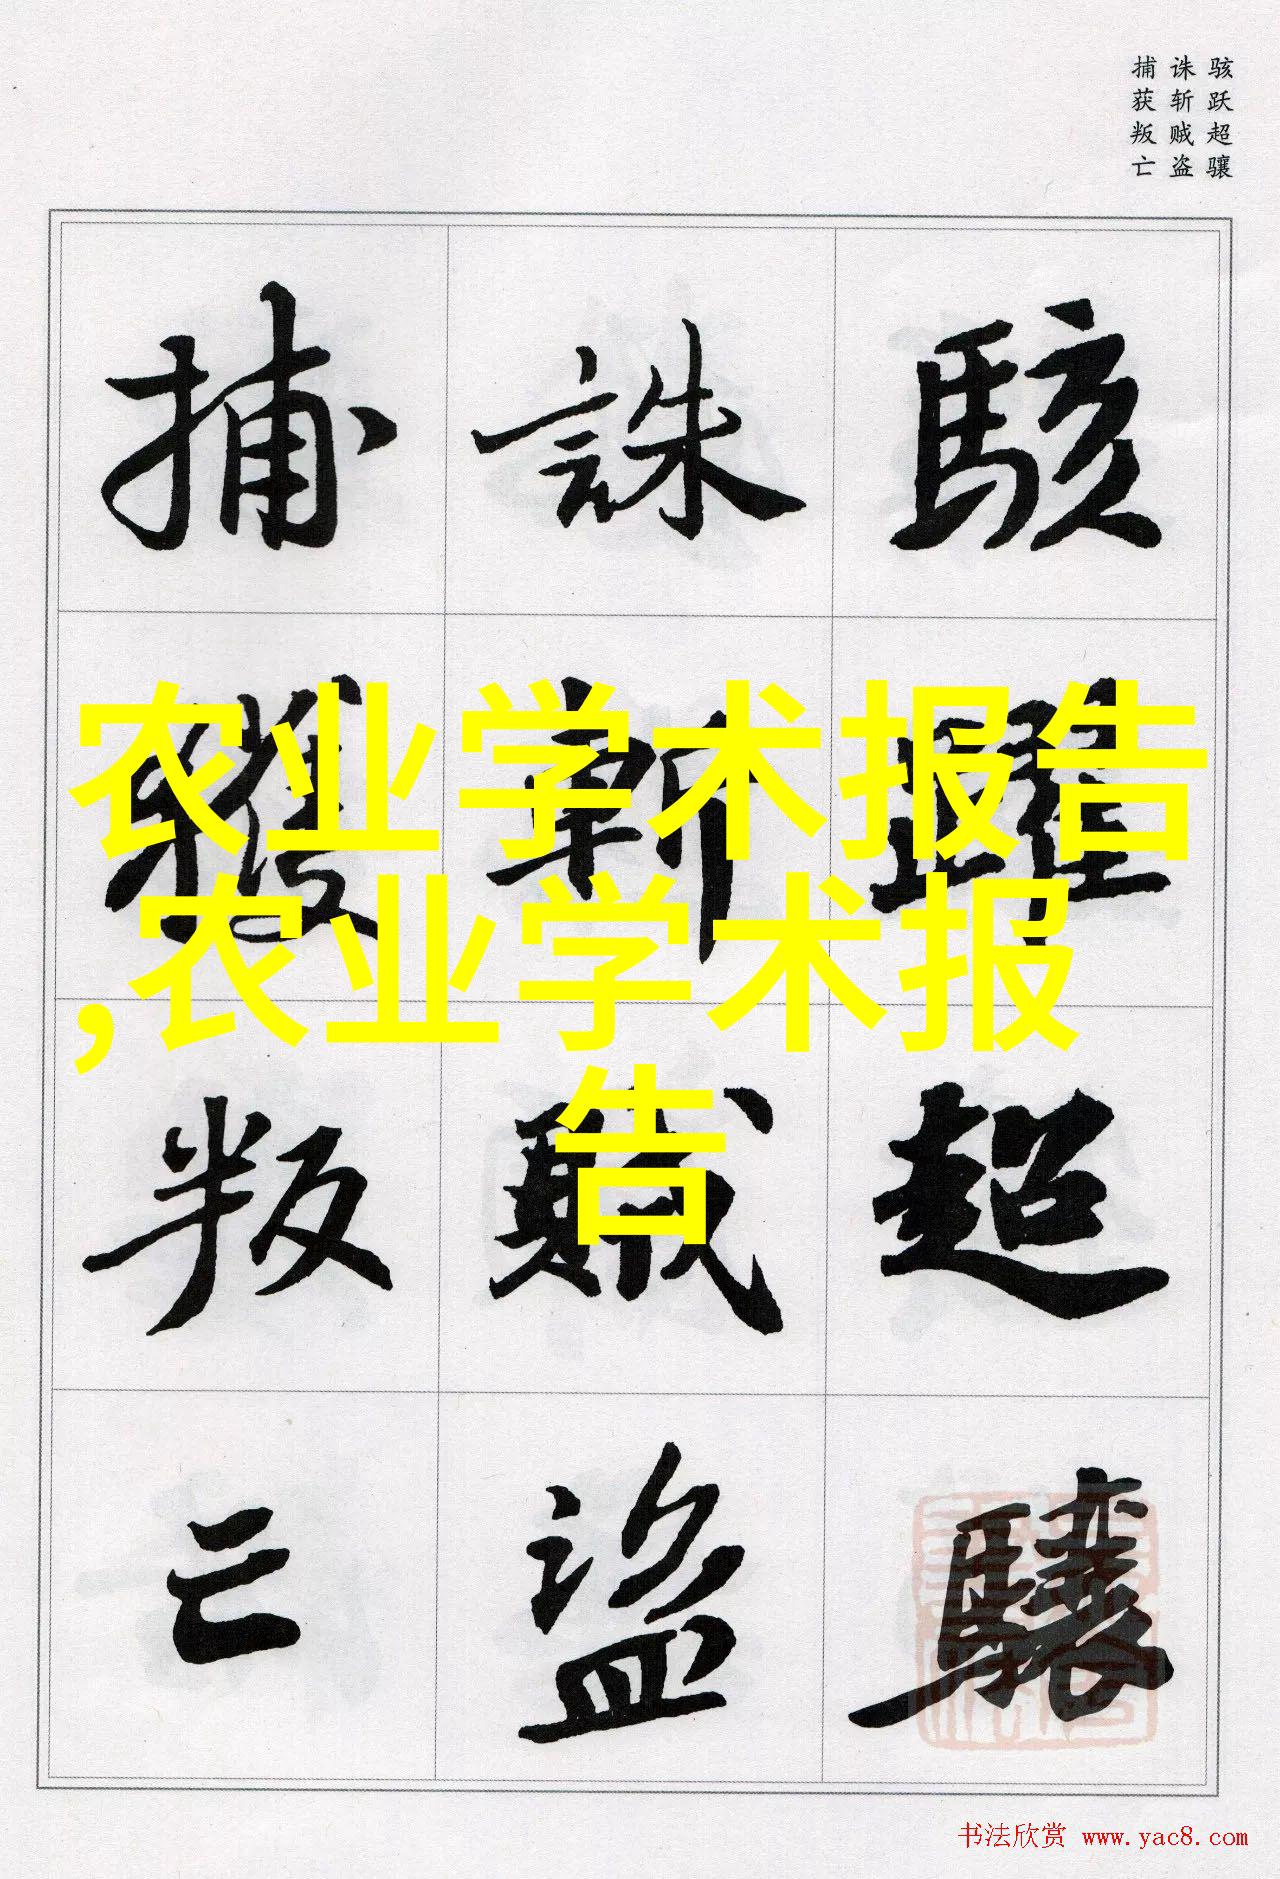 骇跃超骧
诛斩贼盗
捕获叛亡
駭躍超驤
誅斬賊盜
捕獲叛亡
农业学术报告
,农业学术报
告
书法欣赏 www.yac8.com